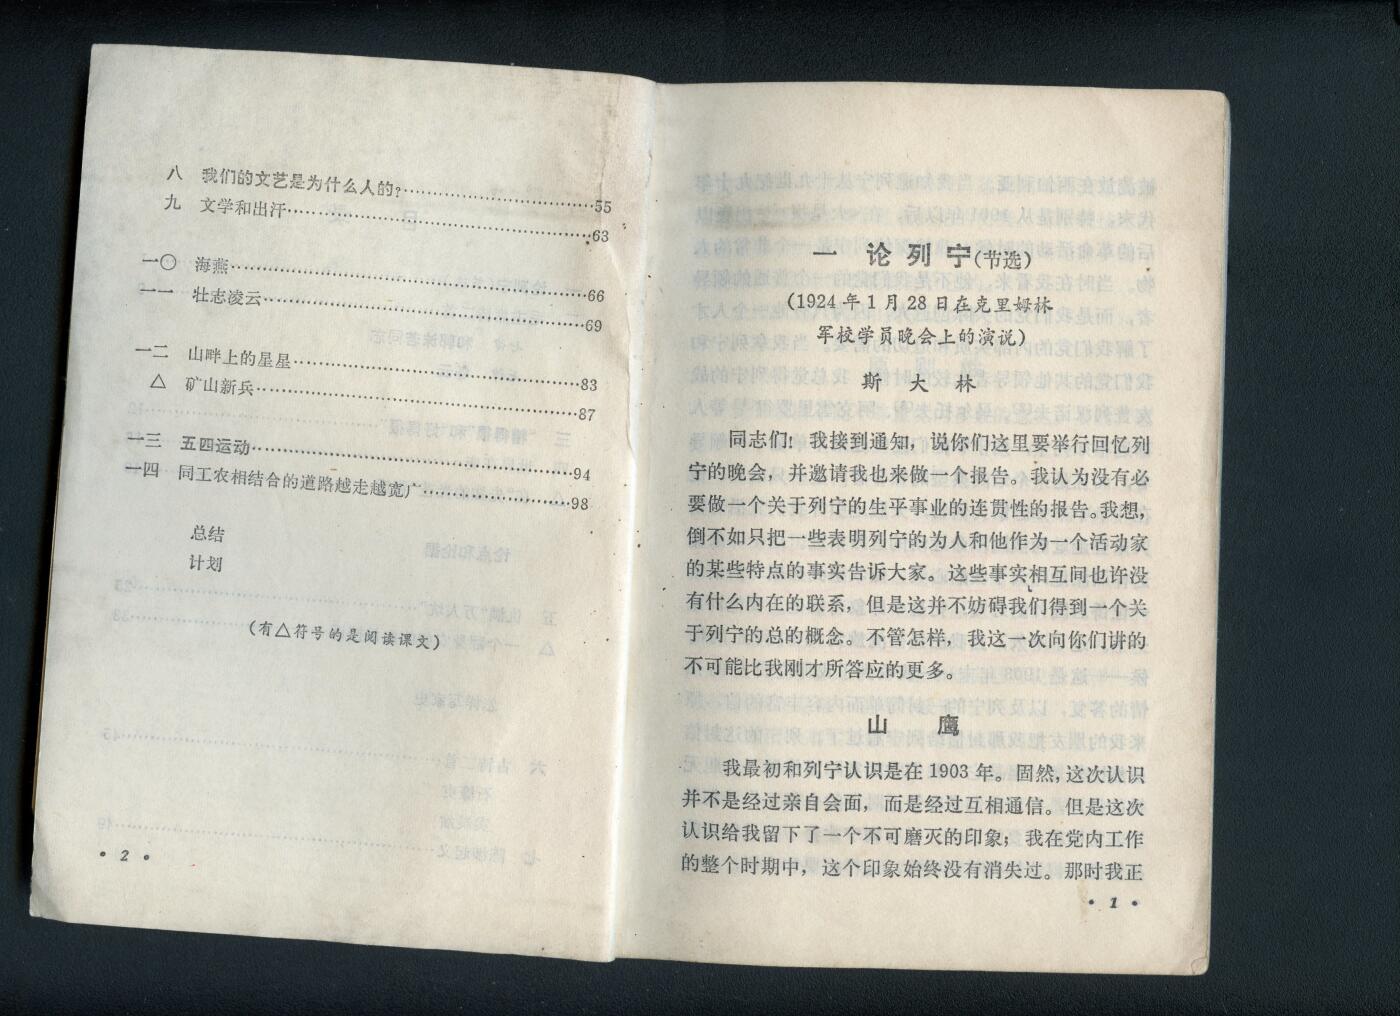 八 我们的文艺是为什么人的?……55
九 文学和出汗……63
一〇 海燕……66
一一 壮志凌云……69
一二 山畔上的星星……83
△ 矿山新兵……87
一三 五四运动……94
一四 同工农相结合的道路越走越宽广……98
总结
计划
(有△符号的是阅读课文)
• 2 •
一 论列宁(节选)
(1924年1月28日在克里姆林
军校学员晚会上的演说)
斯大林
同志们!我接到通知,说你们这里要举行回忆列
宁的晚会,并邀请我也来做一个报告。我认为没有必
要做一个关于列宁的生平事业的连贯性的报告。我想,
倒不如只把一些表明列宁的为人和他作为一个活动家
的某些特点的事实告诉大家。这些事实相互间也许没
有什么内在的联系,但是这并不妨碍我们得到一个关
于列宁的总的概念。不管怎样,我这一次向你们讲的
不可能比我刚才所答应的更多。
山鹰
我最初和列宁认识是在1903年。固然,这次认识
并不是经过亲自会面,而是经过互相通信。但是这次
认识给我留下了一个不可磨灭的印象;我在党内工作
的整个时期中,这个印象始终没有消失过。那时我正
• 1 •